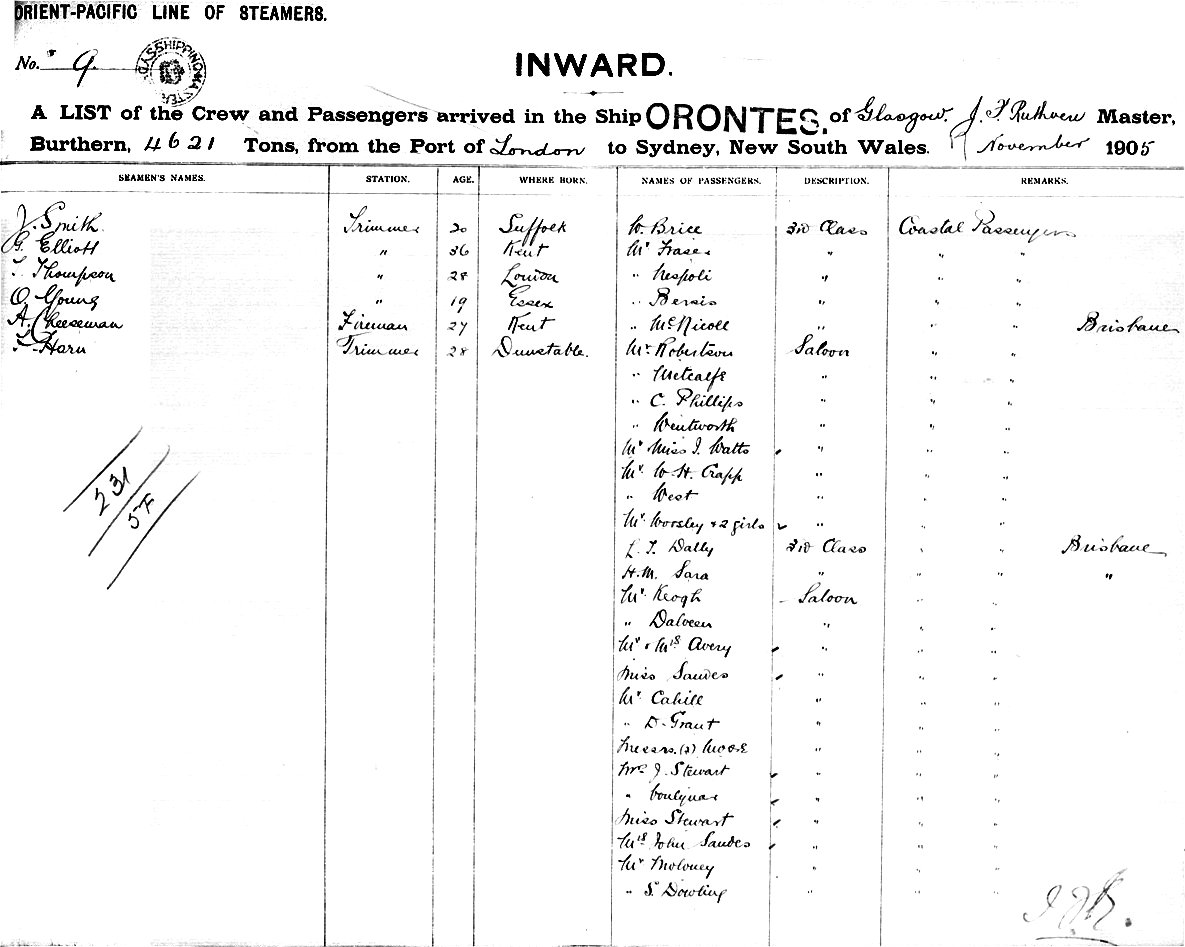 ORIENT-PACIFIC LINE OF STEAMERS.
No. 9.
INWARD.
A LIST of the Crew and Passengers arrived in the Ship ORONTES. of Glasgow. J. F. Ruthven Master,
Burthern, 4621 Tons, from the Port of London to Sydney, New South Wales. November 1905
SEAMEN'S NAMES. STATION. AGE. WHERE BORN. NAMES OF PASSENGERS. DESCRIPTION. REMARKS.
J. Smith Trimmer 20 Suffolk W. Brice 3rd Class Coastal Passengers
G. Elliott " 36 Kent Mr Fraser " " "
Thompson " 28 London " Nespoli " " "
O. Young " 19 Essex " Bersis " " "
A. Cheeseman Fireman 27 Kent " McNicoll " " " Brisbane
Horn Trimmer 28 Dunstable. Mr Robertson Saloon " "
" Metcalfe " " "
" C. Phillips " " "
" Wentworth " " "
Mr Miss J. Watts " " "
Mr W. H. Crapp " " "
" West " " "
Mr Worsley + 2 girls " " "
L. T. Dally 3rd Class " " Brisbane
H. M. Sara " " " "
Mr Keogh Saloon " "
" Dalveen " " "
Mr & Mrs Avery " " "
Miss Sandes " " "
Mr Cahill " " "
" D. Grant " " "
Messrs. (2) Moore " " "
Mrs J. Stewart " " "
" " " "
Miss Stewart " " "
Mrs John Sandes " " "
Mr Moloney " " "
" S. Dowling " " "
231
57